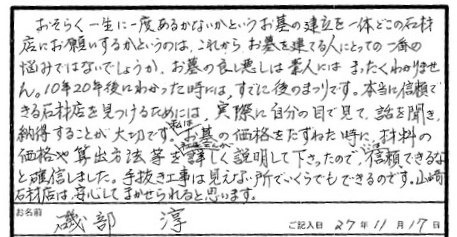 おそらく一生に一度あるかないかというお墓の建立を一体どこの石材
店にお願いするかというのは、これからお墓を建てる人にとっての一番の
悩みではないでしょうか。お墓の良し悪しは素人にはまったくわかりませ
ん。10年20年後にわかった時には、すでに後のまつりです。本当に信頼で
きる石材店を見つけるためには、実際に自分の目で見て、話を聞き、
納得することが大切です。私はお墓の価格をたずねた時に、材料の
価格や算出方法等を詳しく説明して下さったので、信頼できるな
と確信しました。手抜き工事は見えない所でいくらでもできるのです。山崎
石材店は、安心してまかせられると思います。
お名前 磯部 淳 ご記入日 27年11月17日